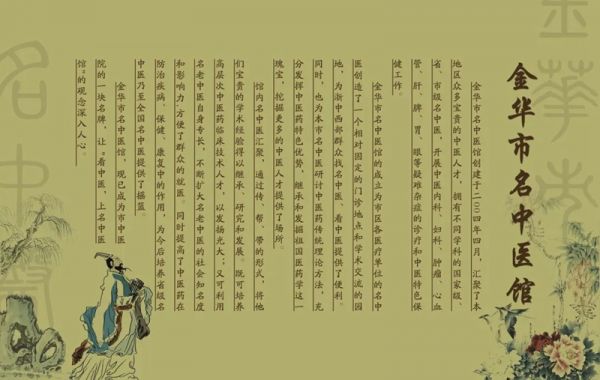 金华市名中医馆
金华市名中医馆创建于二00四年四月，汇聚了本
地区众多宝贵的中医人才，拥有不同学科的国家级、
省、市级名中医，开展中医内科、妇科、肿瘤、心血
管、肝、脾、胃、眼等疑难杂症的诊疗和中医特色保
健工作。
金华市名中医馆的成立为市区各医疗单位的名中
医创造了一个相对固定的门诊地点和学术交流的园
地，为浙中西部群众找名中医、看中医提供了便利。
同时，也为本市名中医研讨中医药传统理论方法，充
分发挥中医药特色优势，继承和发掘祖国医药学这一
瑰宝，挖掘更多的中医人才提供了场所。
馆内名中医汇聚，通过传、帮、带的形式，将他
们宝贵的学术经验得以继承、研究和发展。既可培养
高层次中医药临床技术人才，以发扬光大；又可利用
名老中医自身专长，不断扩大名老中医的社会知名度
和影响力，方便了群众的就医。同时提高了中医药在
防治疾病、保健、康复中的作用，为今后培养省级名
中医乃至全国名中医提供了摇篮。
金华市名中医馆，现已成为市中医
院的一块名牌，让“看中医，上名中医
馆”的观念深入人心。